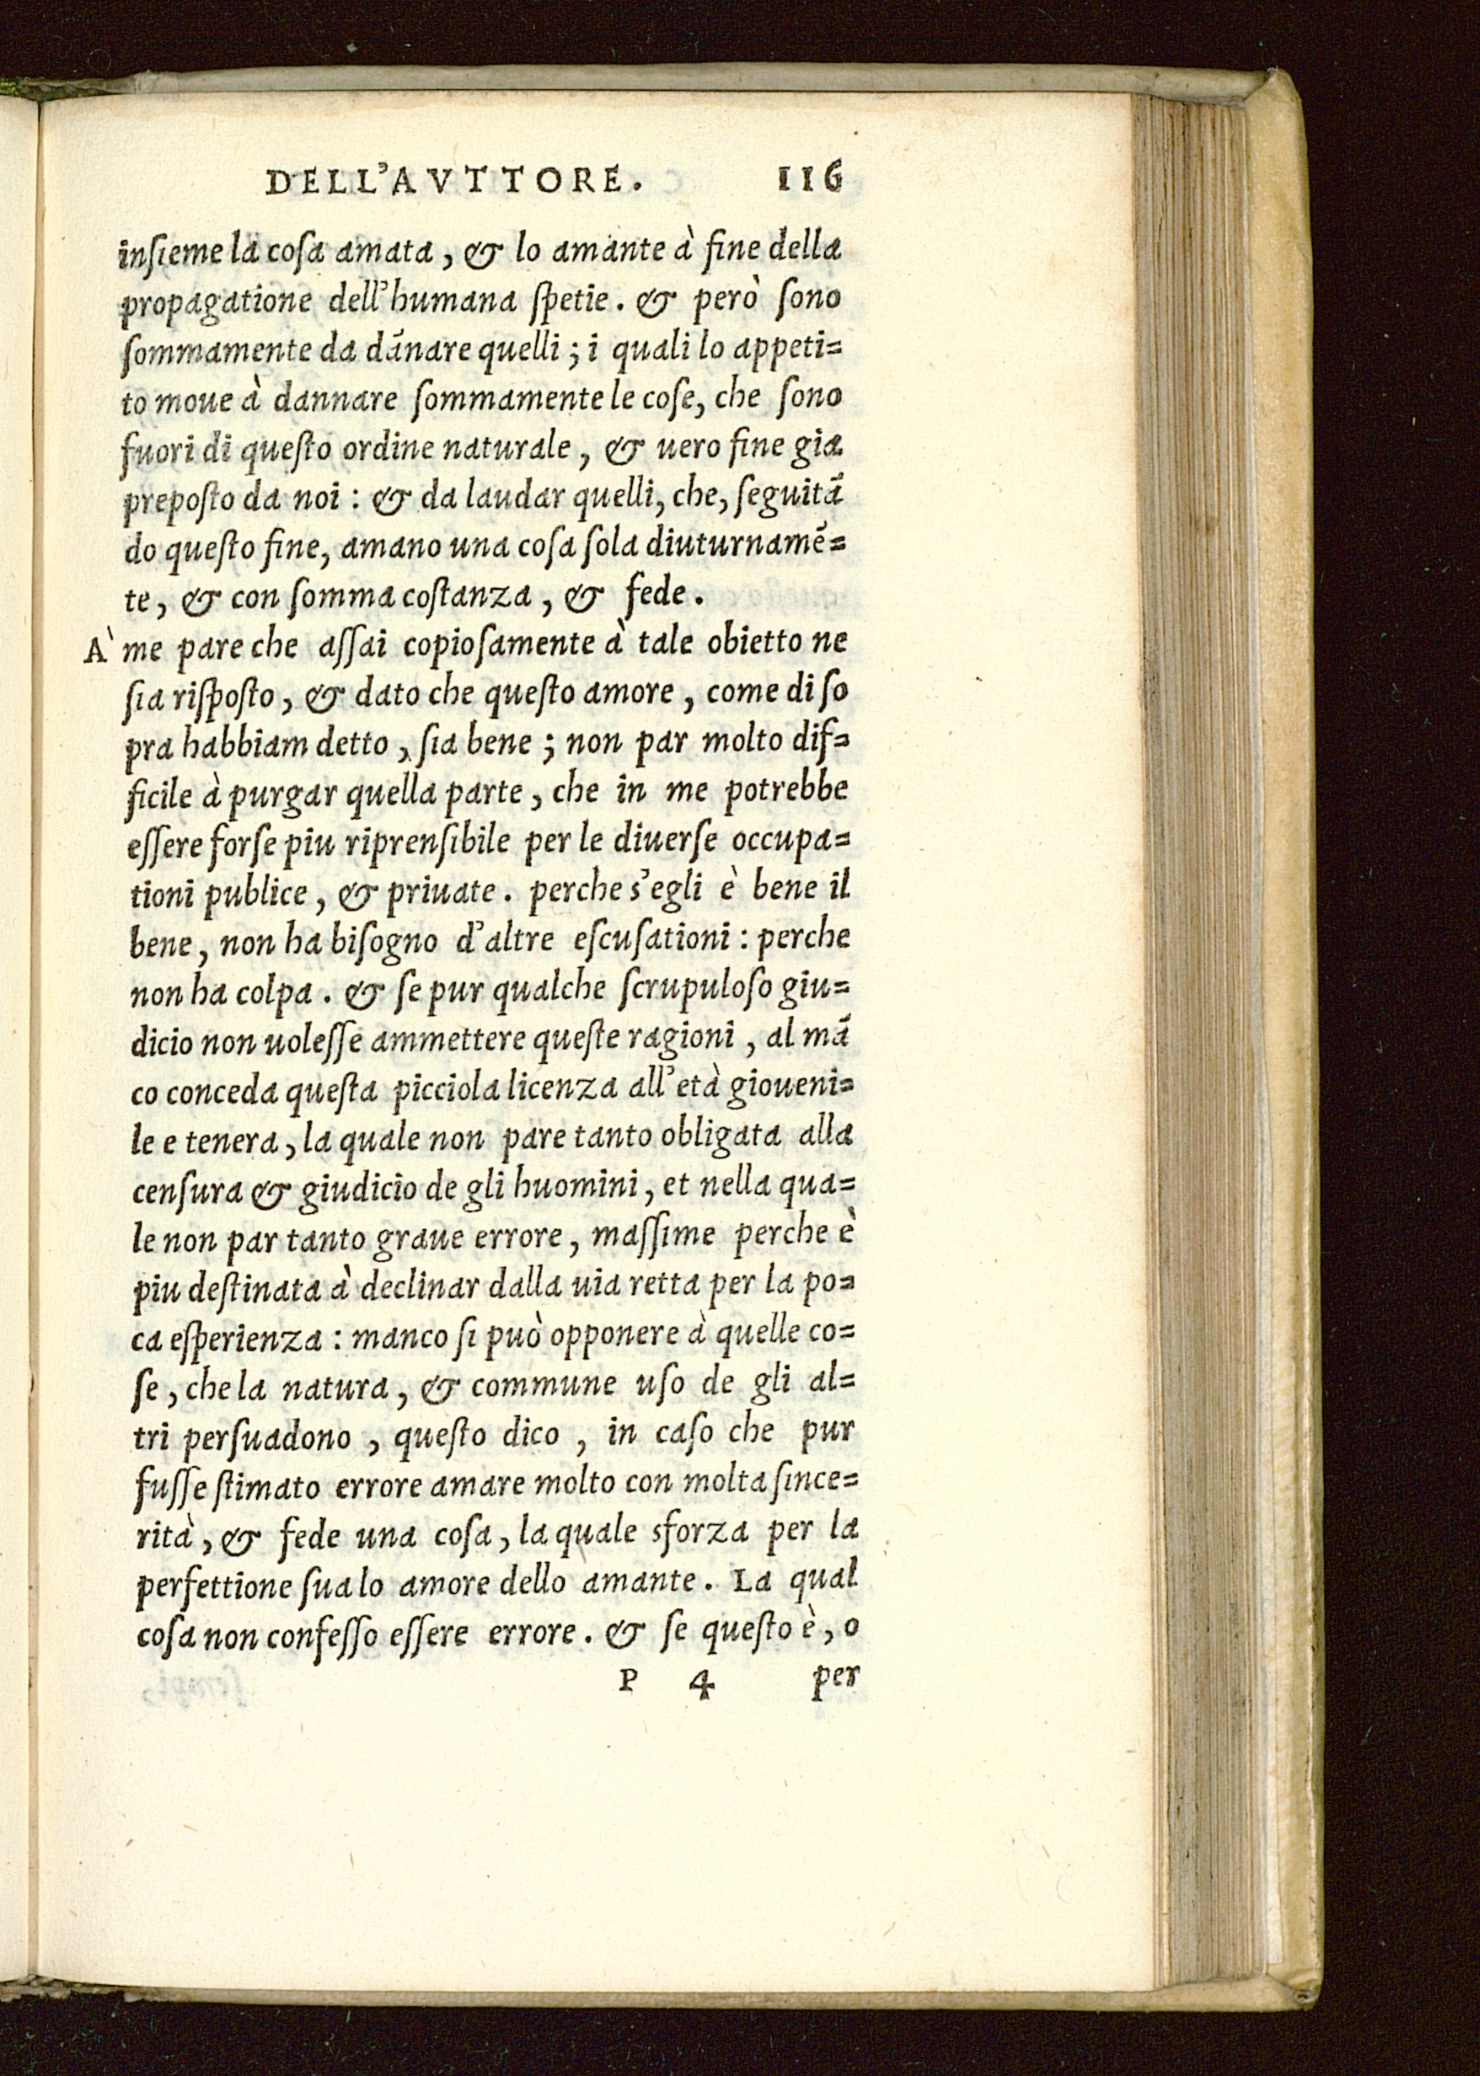 DELL'AVTTORE. 116
inſieme la coſa amata, & lo amante à fine della
propagatione dell'humana ſpetie. & però ſono
ſommamente da dānare quelli; i quali lo appeti=
to moue à dannare ſommamente le coſe, che ſono
fuori di queſto ordine naturale, & uero fine gia
prepoſto da noi: & da laudar quelli, che, ſeguitā
do queſto fine, amano una coſa ſola diuturnamē=
te, & con ſomma coſtanza, & fede.
A' me pare che aſſai copioſamente à tale obietto ne
ſia riſpoſto, & dato che queſto amore, come di ſo
pra habbiam detto, ſia bene; non par molto dif=
ficile à purgar quella parte, che in me potrebbe
eſſere forſe piu riprenſibile per le diuerſe occupa=
tioni publice, & priuate. perche s'egli è bene il
bene, non ha biſogno d'altre eſcuſationi: perche
non ha colpa. & ſe pur qualche ſcrupuloſo giu=
dicio non uoleſſe ammettere queſte ragioni, al mā
co conceda queſta picciola licenza all'età gioueni=
le e tenera, la quale non pare tanto obligata alla
cenſura & giudicio de gli huomini, et nella qua=
le non par tanto graue errore, maſſime perche è
piu deſtinata à declinar dalla uia retta per la po=
ca eſperienza: manco ſi può opponere à quelle co=
ſe, che la natura, & commune uſo de gli al=
tri perſuadono, queſto dico, in caſo che pur
fuſſe ſtimato errore amare molto con molta ſince=
rità, & fede una coſa, la quale sforza per la
perfettione ſua lo amore dello amante. La qual
coſa non confeſſo eſſere errore. & ſe queſto è, o
P 4 per